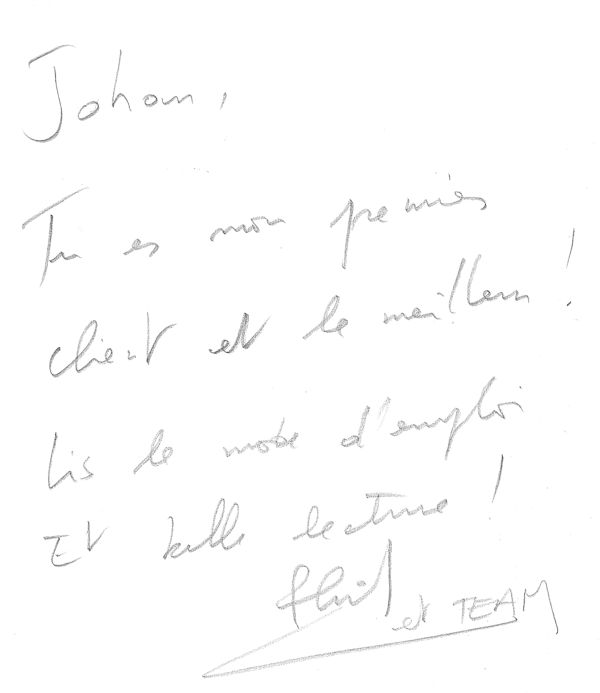 Johan,
Tu es mon premier
client et le meilleur !
Lis le mode d'emploi
Et belle lecture !
et TEAM